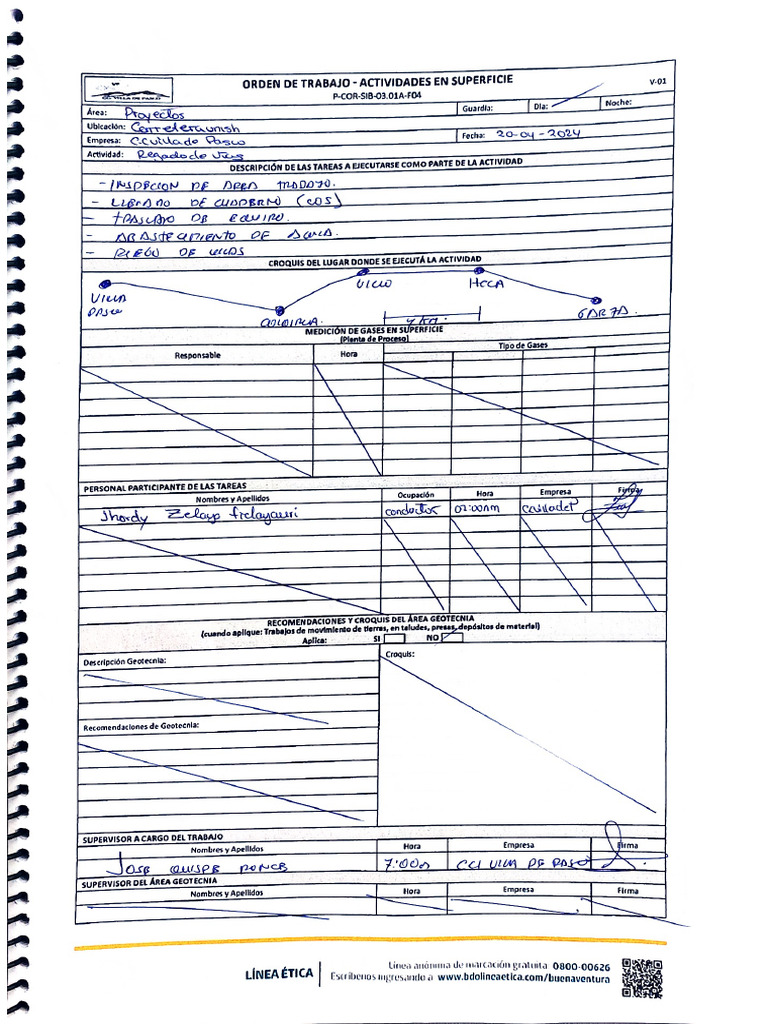 ORDEN DE TRABAJO - ACTIVIDADES EN SUPERFICIE
P-COR-SIB-03.01A-F04
V-01
CC VILLA DE PASCO
Área: Proyectos
Guardia: Día: Noche:
Ubicación: Carretera unish
Empresa: C.C Villa de Pasco
Fecha: 20-04-2024
Actividad: Regado de Vias
DESCRIPCIÓN DE LAS TAREAS A EJECUTARSE COMO PARTE DE LA ACTIVIDAD
- INSPECION DE AREA TRABAJO.
- LLENADO DE CUADERNO (COS)
- TRASLADO DE EQUIPO.
- ABASTECIMIENTO DE AGUA.
- RIEGO DE VIAS
CROQUIS DEL LUGAR DONDE SE EJECUTÁ LA ACTIVIDAD
VILLA PASCO
VICCO
HCCA
4 Km.
MEDICIÓN DE GASES EN SUPERFICIE
(Planta de Proceso)
Responsable Hora Tipo de Gases
PERSONAL PARTICIPANTE DE LAS TAREAS
Nombres y Apellidos Ocupación Hora Empresa Firma
Jhordy Zelaya conductor 07:00AM
RECOMENDACIONES Y CROQUIS DEL ÁREA GEOTECNIA
(cuando aplique: Trabajos de movimiento de tierras, en taludes, presas, depósitos de material)
Aplica: SI NO
Descripción Geotecnia:
Croquis:
Recomendaciones de Geotecnia:
SUPERVISOR A CARGO DEL TRABAJO
Nombres y Apellidos Hora Empresa Firma
JOSE QUISPE PONCE 7:00a CCI VILLA DE PASCO
SUPERVISOR DEL ÁREA GEOTECNIA
Nombres y Apellidos Hora Empresa Firma
LÍNEA ÉTICA
Línea anónima de marcación gratuita 0800-00626
Escríbenos ingresando a www.bdolineaetica.com/buenaventura